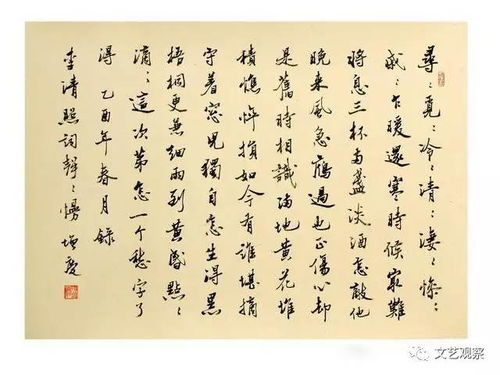 尋々覓々冷々清々淒々慘々
戚々乍暖還寒時候最難
將息三杯兩盞淡酒怎敵他
晚來風急鴈過也正傷心却
是舊時相識滿地黃花堆
積憔悴損如今有誰堪摘
守着窓兒獨自怎生得黑
梧桐更兼細雨到黃昏點々
滴々這次第怎一个愁字了
得 乙酉年春月錄
李清照詞聲々慢
文艺观察